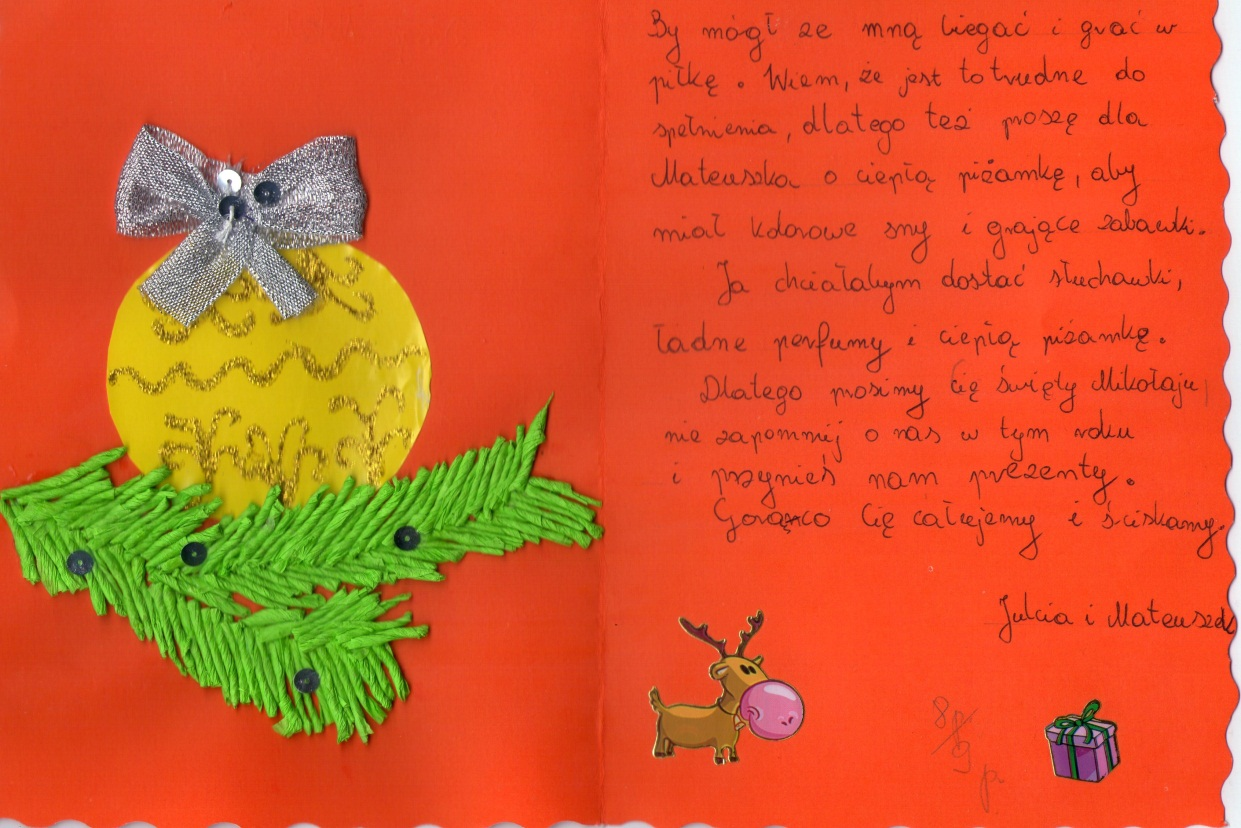 By mógł ze mną biegać i grać w
piłkę. Wiem, że jest to trudne do
spełnienia, dlatego też proszę dla
Mateuszka o ciepłą piżamkę, aby
miał kolorowe sny i grające zabawki.
Ja chciałabym dostać słuchawki,
ładne perfumy i ciepłą piżamkę.
Dlatego prosimy Cię święty Mikołaju,
nie zapomnij o nas w tym roku
i przynieś nam prezenty.
Gorąco Cię całujemy i ściskamy.
Julcia i Mateuszek